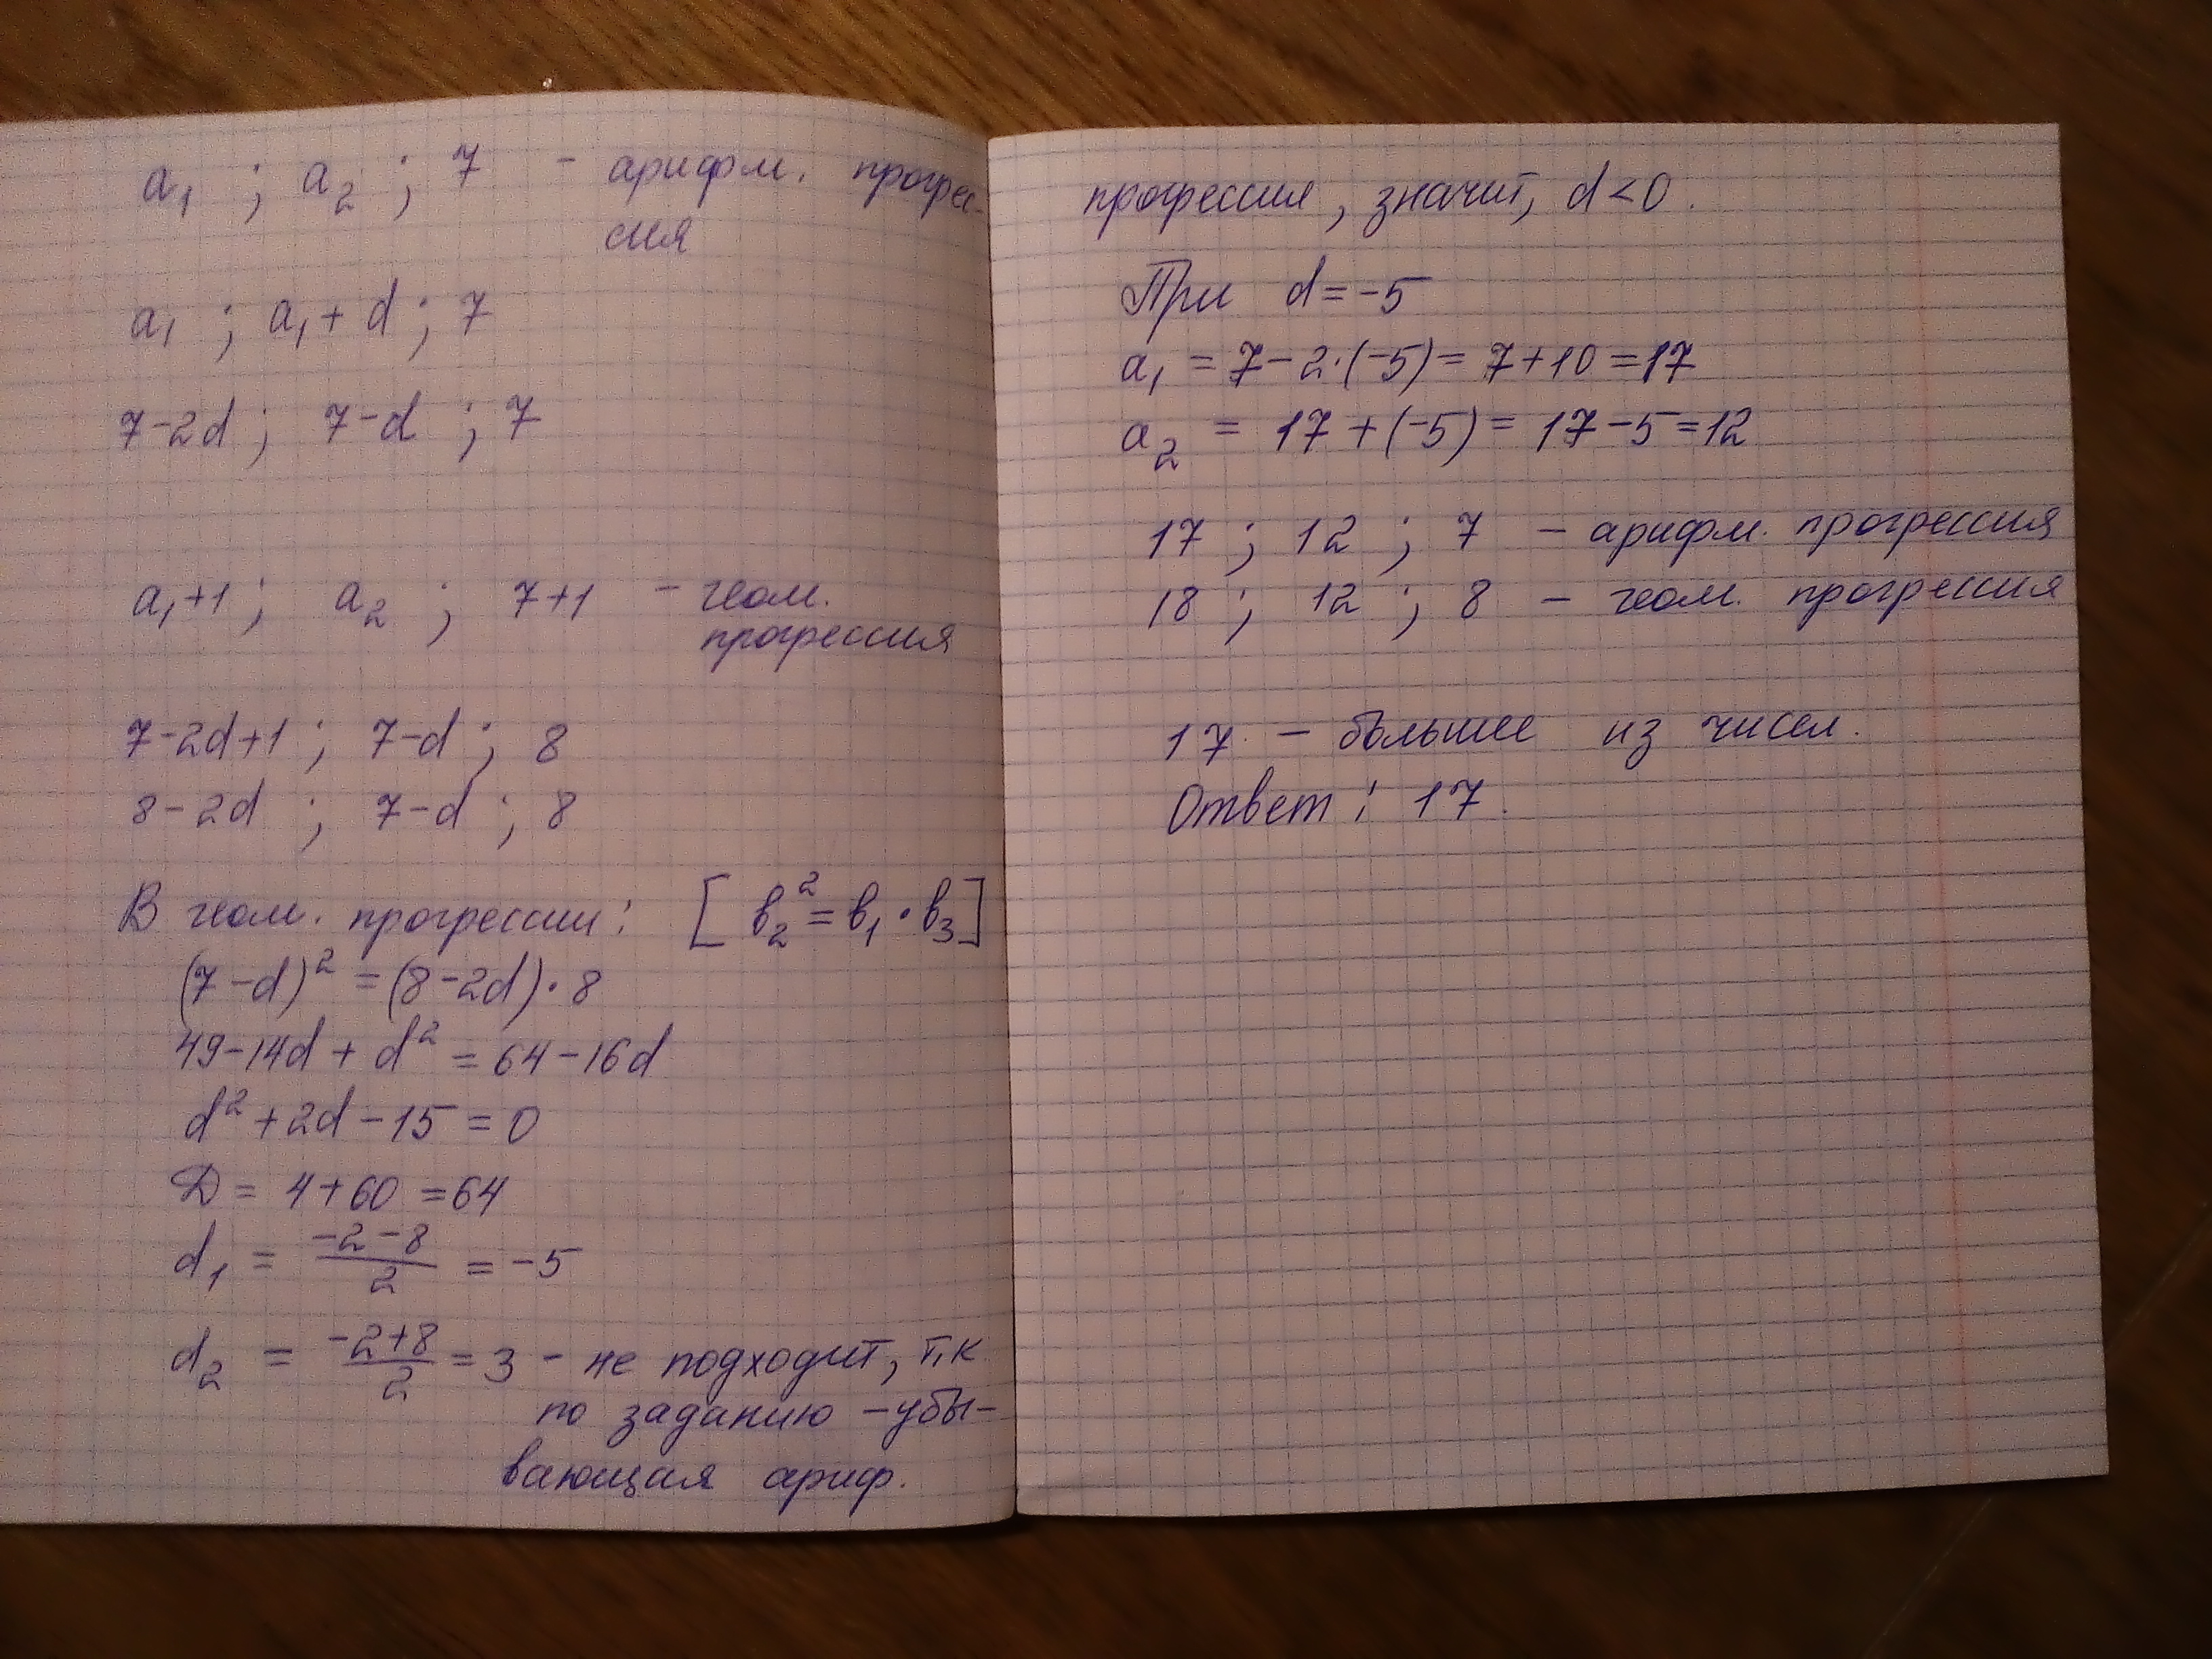 a₁ ; a₂ ; 7 - арифм. прогрес-
сия
a₁ ; a₁ + d ; 7
7-2d ; 7-d ; 7
a₁+1 ; a₂ ; 7+1 - геом.
прогрессия
7-2d+1 ; 7-d ; 8
8-2d ; 7-d ; 8
В геом. прогрессии: [b₂² = b₁ · b₃]
(7-d)² = (8-2d) · 8
49-14d + d² = 64-16d
d² + 2d - 15 = 0
D = 4+60 = 64
d₁ = (-2-8)/2 = -5
d₂ = (-2+8)/2 = 3 - не подходит, т.к
по заданию - убы-
вающая ариф.
прогрессия, значит, d<0.
При d = -5
a₁ = 7-2·(-5) = 7+10 = 17
a₂ = 17+(-5) = 17-5 = 12
17 ; 12 ; 7 - арифм. прогрессия
18 ; 12 ; 8 - геом. прогрессия
17 - большее из чисел.
Ответ: 17.